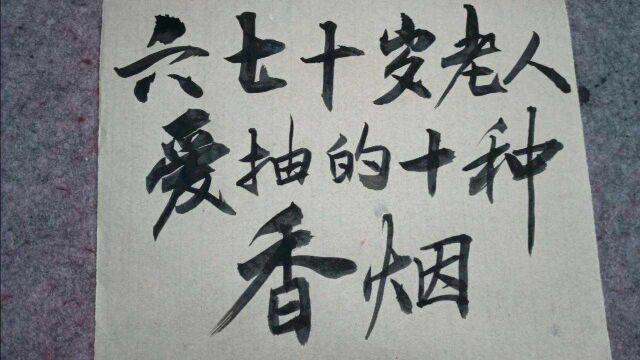 六七十岁老人
爱抽的十种
香烟